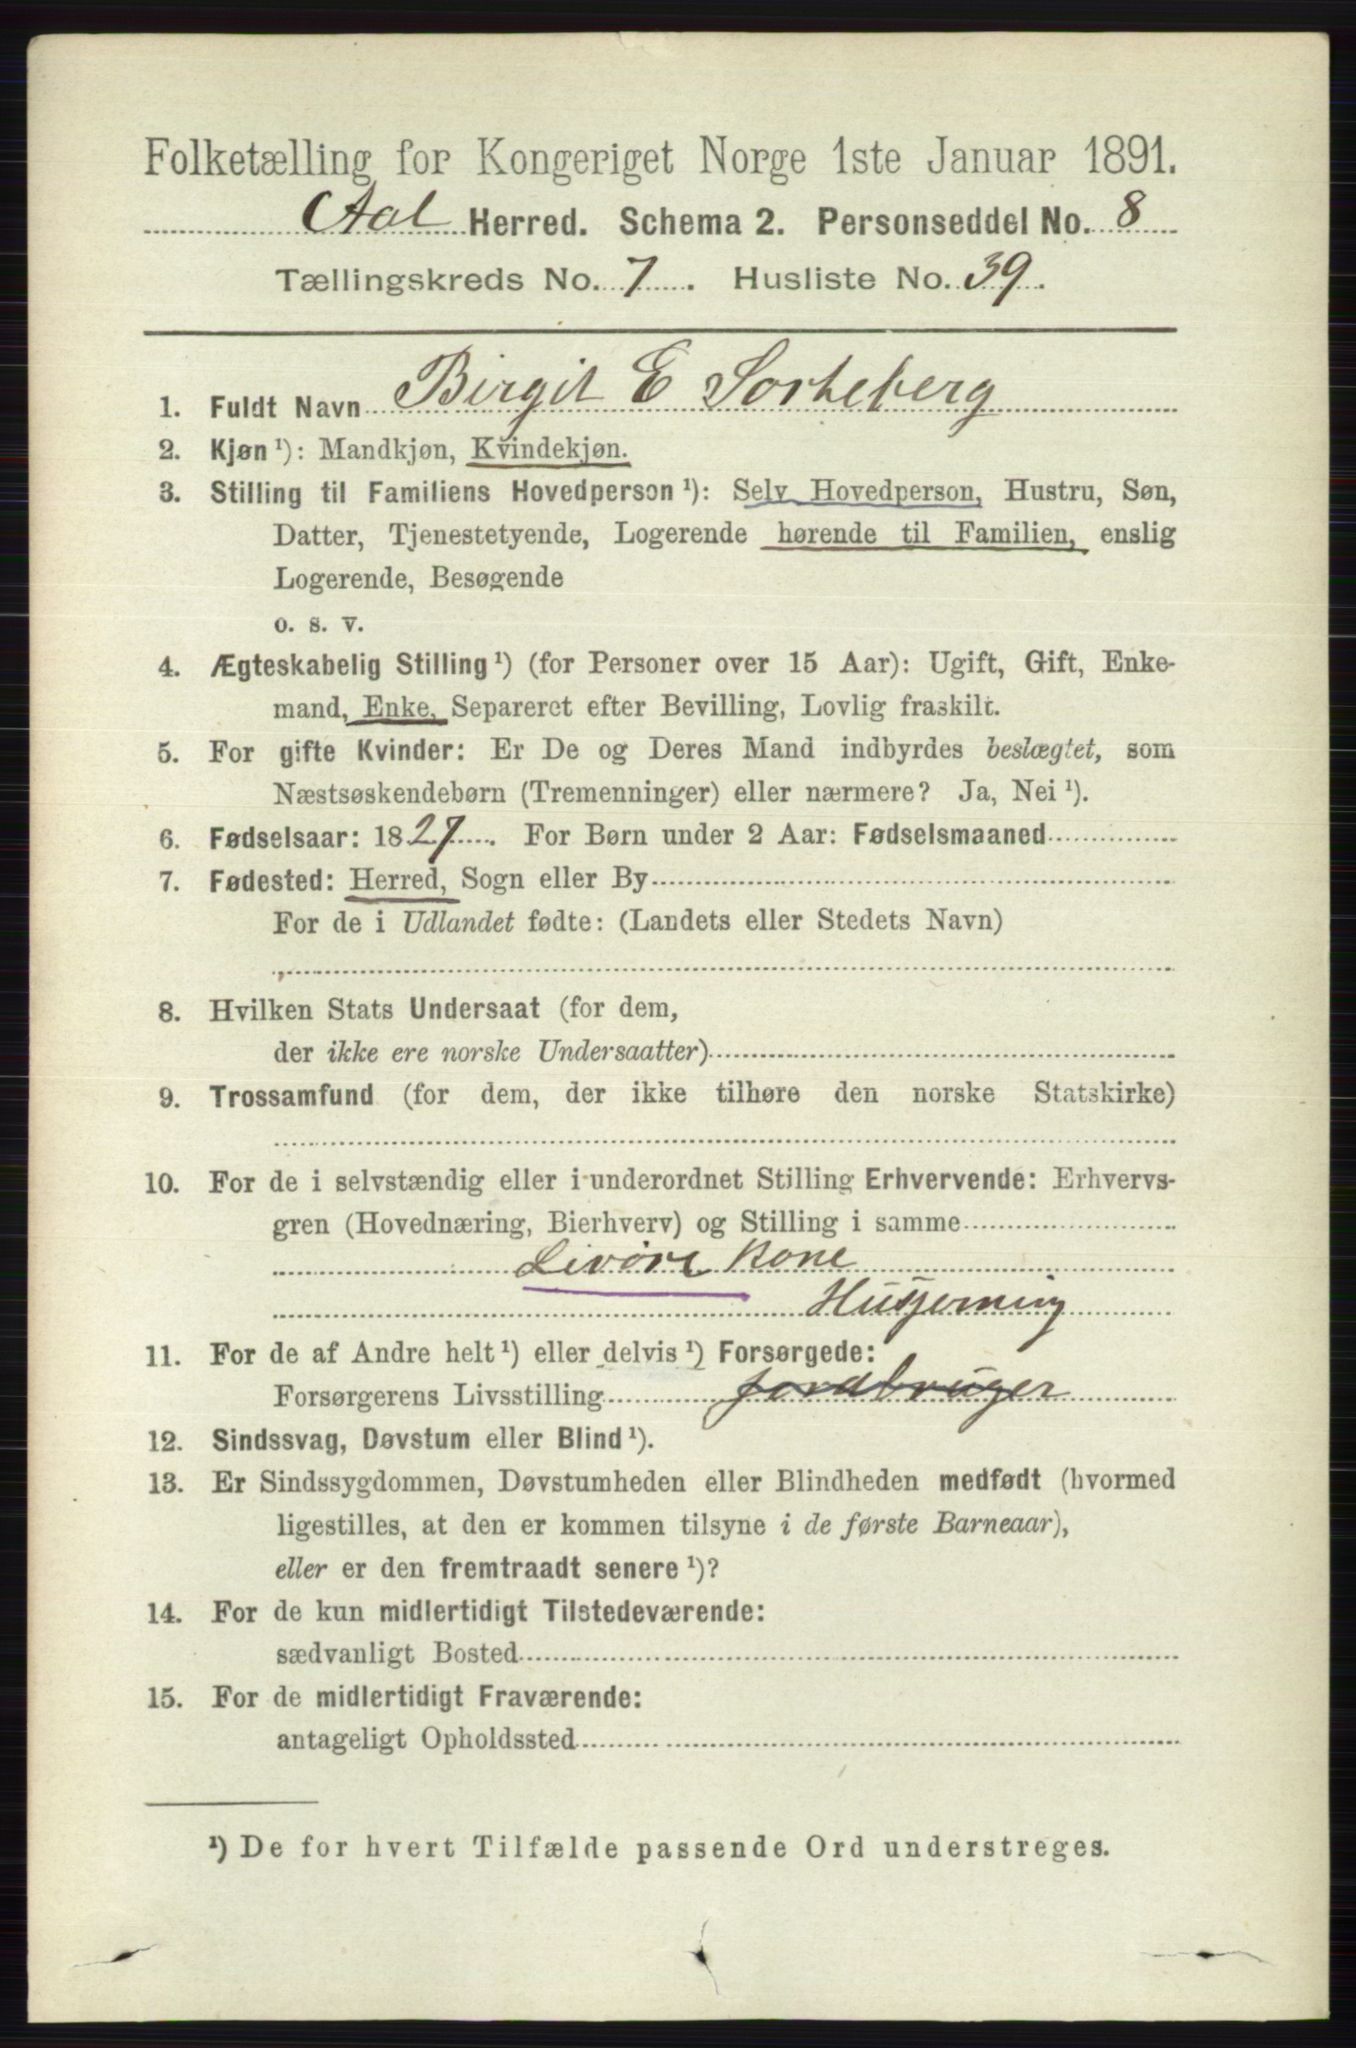 Folketælling for Kongeriget Norge 1ste Januar 1891.
Aal Herred. Schema 2. Personseddel No. 8
Tællingskreds No. 7. Husliste No. 39.
1. Fuldt Navn Birgit E Sorteberg
2. Kjøn ¹): Mandkjøn, Kvindekjøn.
3. Stilling til Familiens Hovedperson ¹): Selv Hovedperson, Hustru, Søn,
Datter, Tjenestetyende, Logerende hørende til Familien, enslig
Logerende, Besøgende
o. s. v.
4. Ægteskabelig Stilling ¹) (for Personer over 15 Aar): Ugift, Gift, Enke-
mand, Enke, Separeret efter Bevilling, Lovlig fraskilt.
5. For gifte Kvinder: Er De og Deres Mand indbyrdes beslægtet, som
Næstsøskendebørn (Tremenninger) eller nærmere? Ja, Nei ¹).
6. Fødselsaar: 1827. For Børn under 2 Aar: Fødselsmaaned
7. Fødested: Herred, Sogn eller By
For de i Udlandet fødte: (Landets eller Stedets Navn)
8. Hvilken Stats Undersaat (for dem,
der ikke ere norske Undersaatter)
9. Trossamfund (for dem, der ikke tilhøre den norske Statskirke)
10. For de i selvstændig eller i underordnet Stilling Erhvervende: Erhvervs-
gren (Hovednæring, Bierhverv) og Stilling i samme
Livøre Kone
Husgjerning
11. For de af Andre helt ¹) eller delvis ¹) Forsørgede:
Forsørgerens Livsstilling jordbruger
12. Sindssvag, Døvstum eller Blind ¹).
13. Er Sindssygdommen, Døvstumheden eller Blindheden medfødt (hvormed
ligestilles, at den er kommen tilsyne i de første Barneaar),
eller er den fremtraadt senere ¹)?
14. For de kun midlertidigt Tilstedeværende:
sædvanligt Bosted
15. For de midlertidigt Fraværende:
antageligt Opholdssted
¹) De for hvert Tilfælde passende Ord understreges.